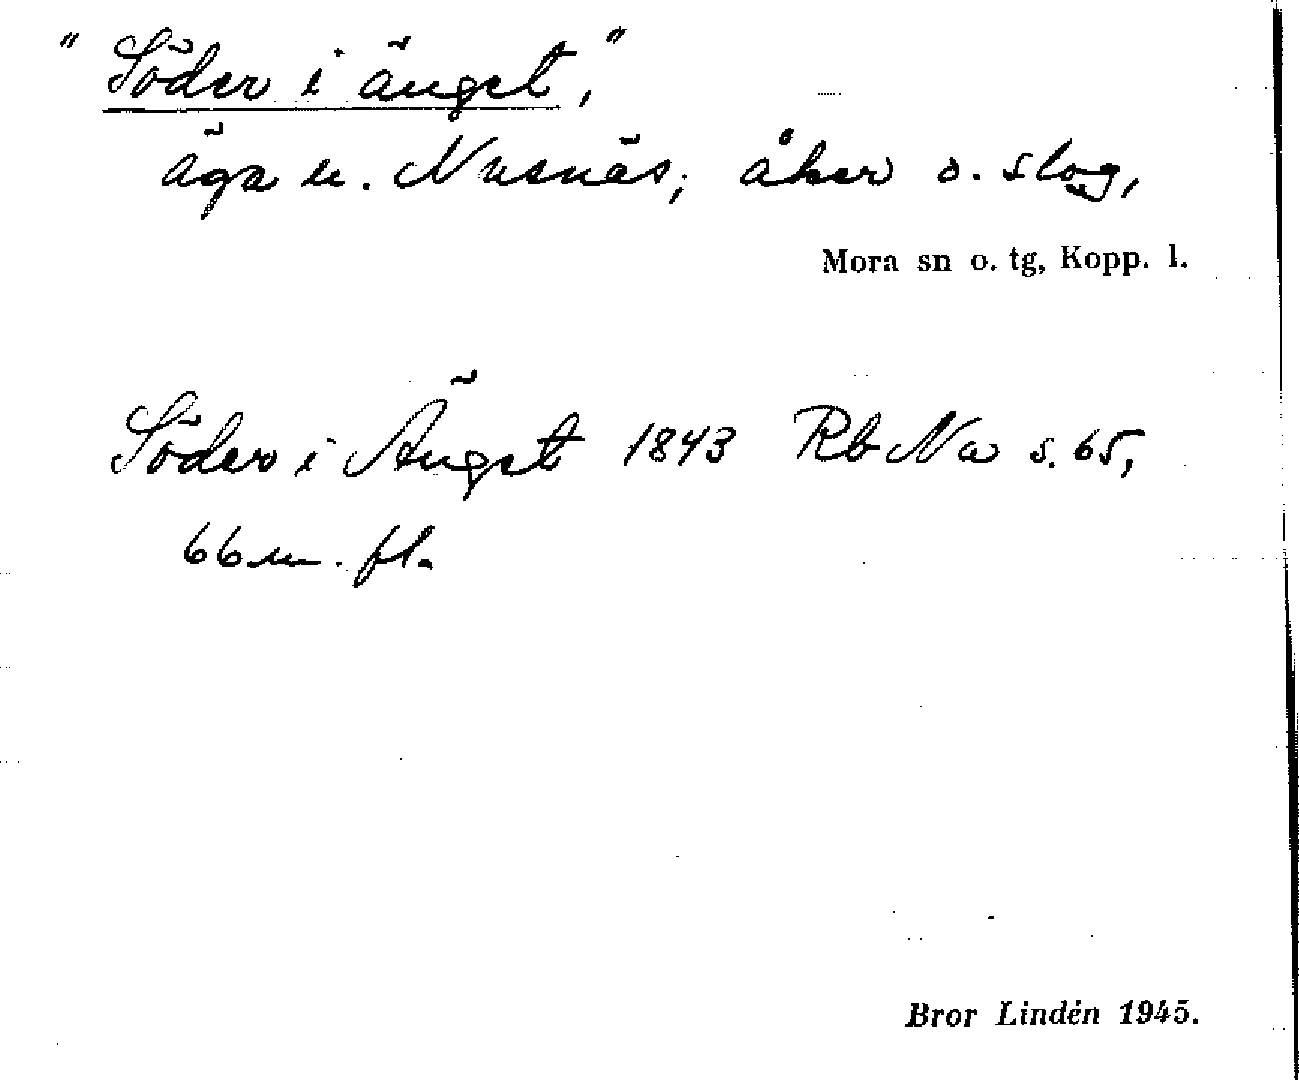 "Söder i änget,"
äga u. Nusnäs; åker o. slog,
Mora sn o. tg, Kopp. l.
Söder i Änget 1843 Rb Na s. 65,
66 m. fl.
Bror Lindén 1945.